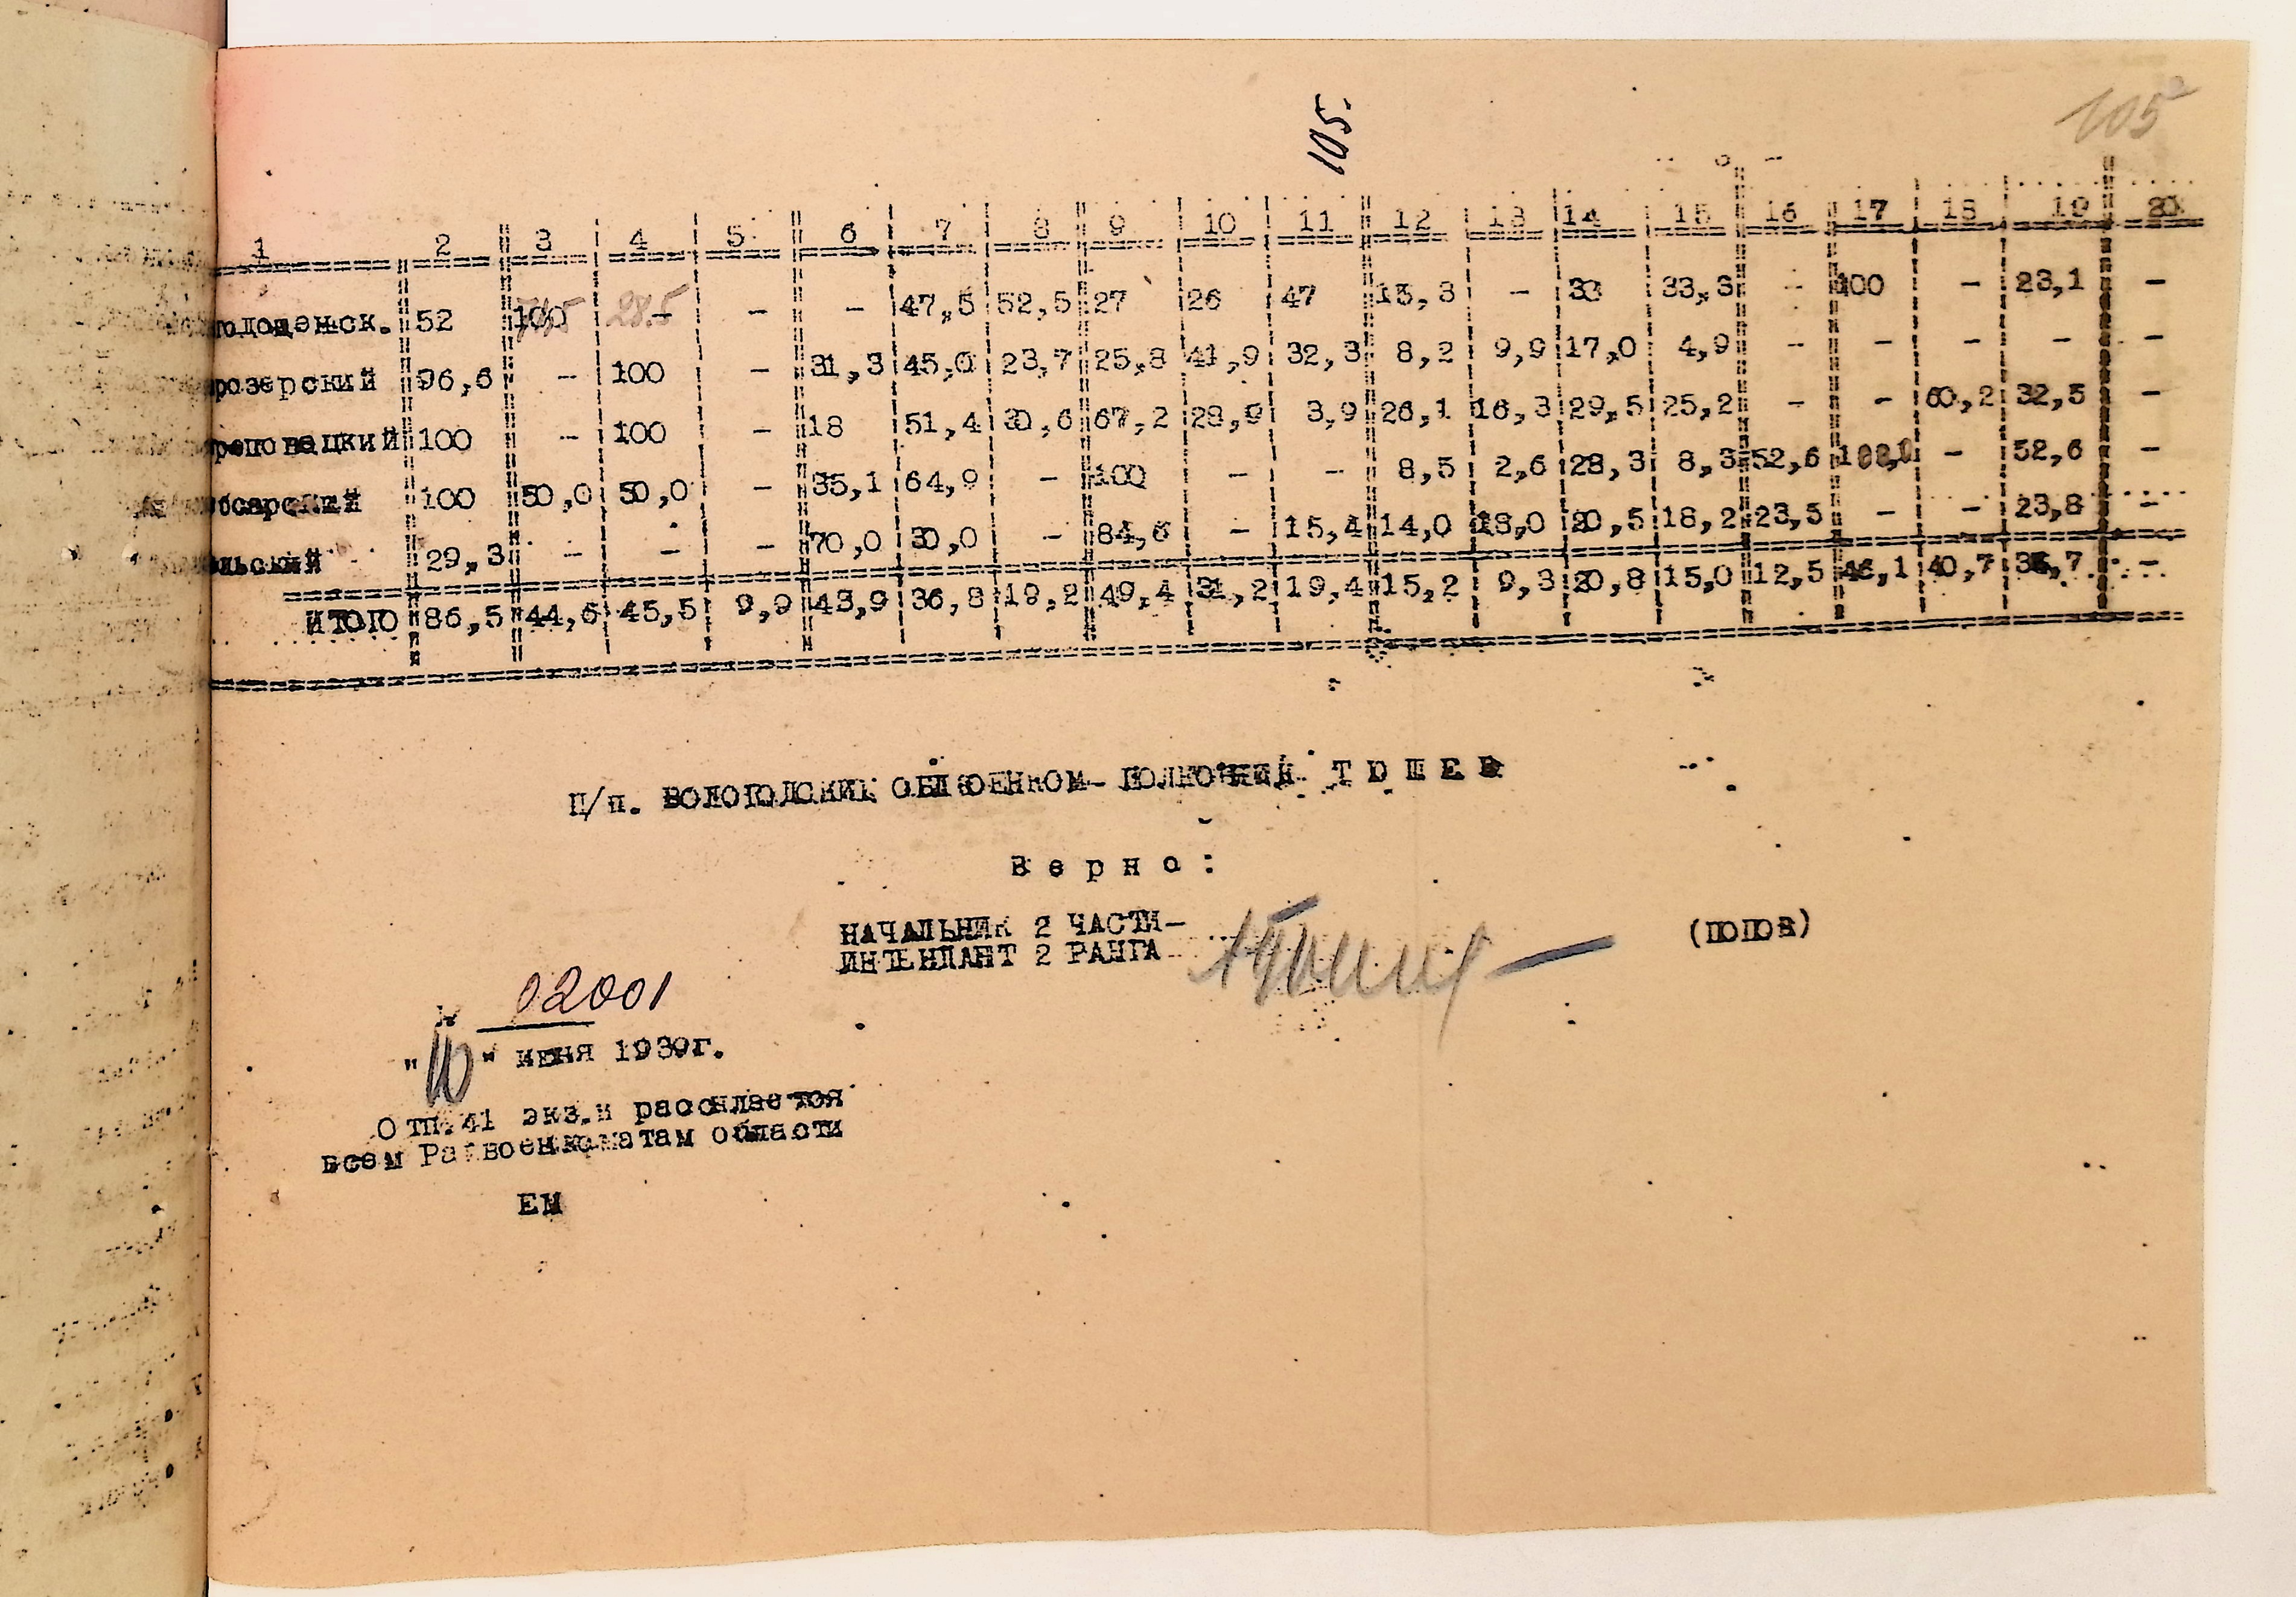 105.
105²
1 2 3 4 5 6 7 8 9 10 11 12 13 14 15 16 17 18 19 20
лоденск. 52 100 28.5 - - 47,5 52,5 27 26 47 13,3 - 33 33,3 - 100 - 23,1 -
розерский 96,6 - 100 - 31,3 45,0 23,7 25,8 41,9 32,3 8,2 9,9 17,0 4,9 - - - - -
реповецкий 100 - 100 - 18 51,4 30,6 67,2 28,9 3,9 26,1 16,3 29,5 25,2 - - 60,2 32,5 -
сарский 100 50,0 50,0 - 35,1 64,9 - 100 - - 8,5 2,6 28,3 8,3 52,6 100,0 - 52,6 -
льский 29,3 - - - 70,0 30,0 - 84,6 - 15,4 14,0 13,0 20,5 18,2 23,5 - - 23,8 -
ИТОГО 86,5 44,6 45,5 9,9 43,9 36,8 19,2 49,4 31,2 19,4 15,2 9,3 20,8 15,0 12,5 46,1 40,7 36,7 -
П/п. ВОЛОГОДСКИЙ ОБЛВОЕНКОМ- ПОЛКОВНИК- Т Ю Ш Е В
В е р н о :
НАЧАЛЬНИК 2 ЧАСТИ-
ИНТЕНДАНТ 2 РАНГА (ПОПОВ)
№ 02001
"10" июня 1939г.
Отп.41 экз.и рассылается
всем Райвоенкоматам области
ЕМ